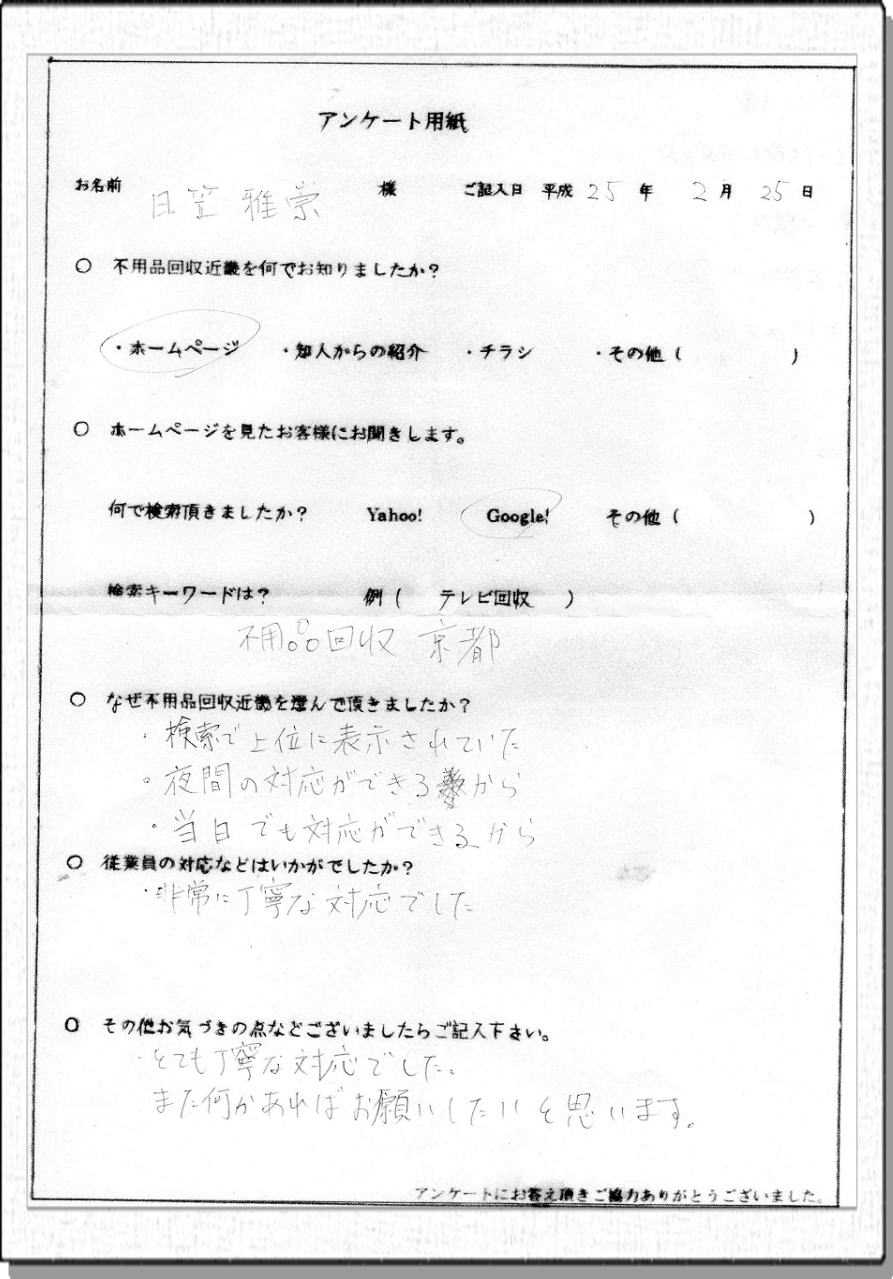 アンケート用紙
お名前 日笠 雅崇 様 ご記入日 平成 25 年 2 月 25 日
○ 不用品回収近畿を何でお知りましたか?
・ホームページ ・知人からの紹介 ・チラシ ・その他 ( )
○ ホームページを見たお客様にお聞きします。
何で検索頂きましたか? Yahoo! Google! その他 ( )
検索キーワードは? 例 ( テレビ回収 )
不用品回収 京都
○ なぜ不用品回収近畿を選んで頂きましたか?
・検索で上位に表示されていた
・夜間の対応ができるから
・当日でも対応ができるから
○ 従業員の対応などはいかがでしたか?
・非常に丁寧な対応でした
○ その他お気づきの点などございましたらご記入下さい。
・とても丁寧な対応でした。
また何かあればお願いしたいと思います。
アンケートにお答え頂きご協力ありがとうございました。